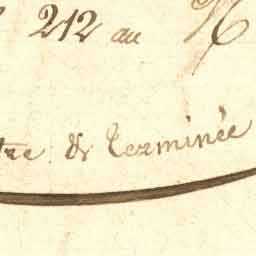 212 au N
tre & terminée